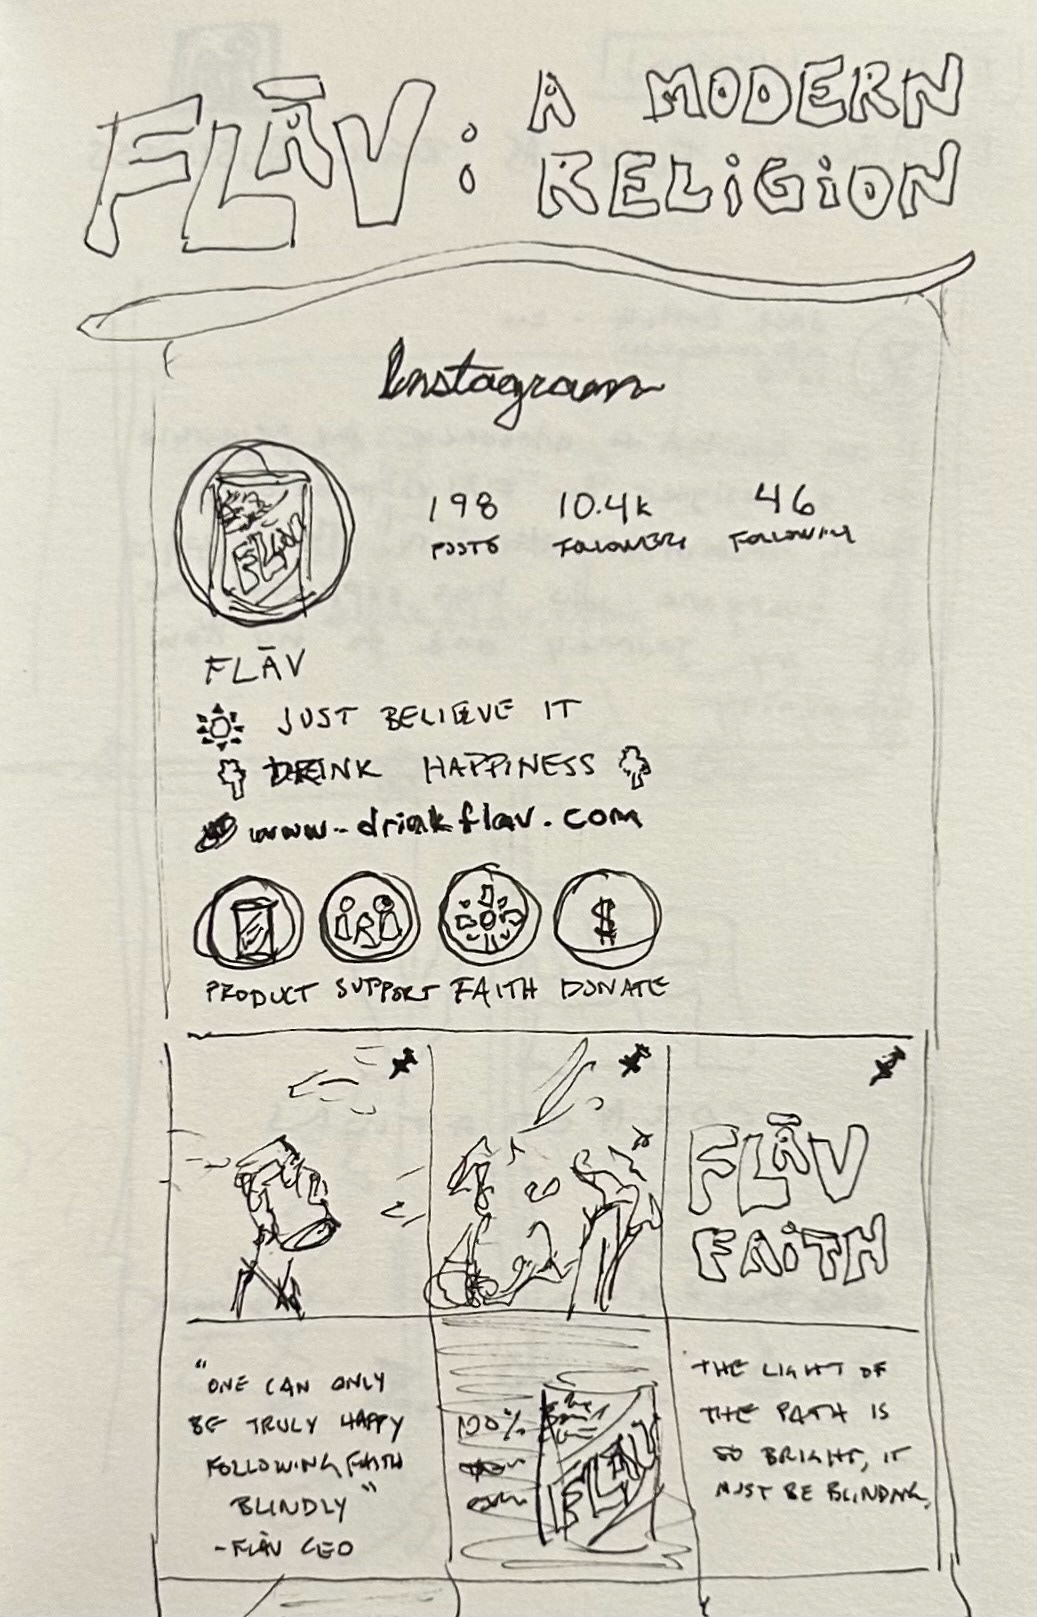 FLĀV: A MODERN
RELIGION
Instagram
198 10.4K 46
POSTS FOLLOWERS FOLLOWING
FLĀV
FLĀV
JUST BELIEVE IT
DRINK HAPPINESS
www.drinkflav.com
PRODUCT SUPPORT FAITH DONATE
FLĀV
FAITH
"ONE CAN ONLY
BE TRULY HAPPY
FOLLOWING FAITH
BLINDLY"
- FLĀV CEO
100%
FLAV
THE LIGHT OF
THE PATH IS
SO BRIGHT, IT
MUST BE BLINDING.